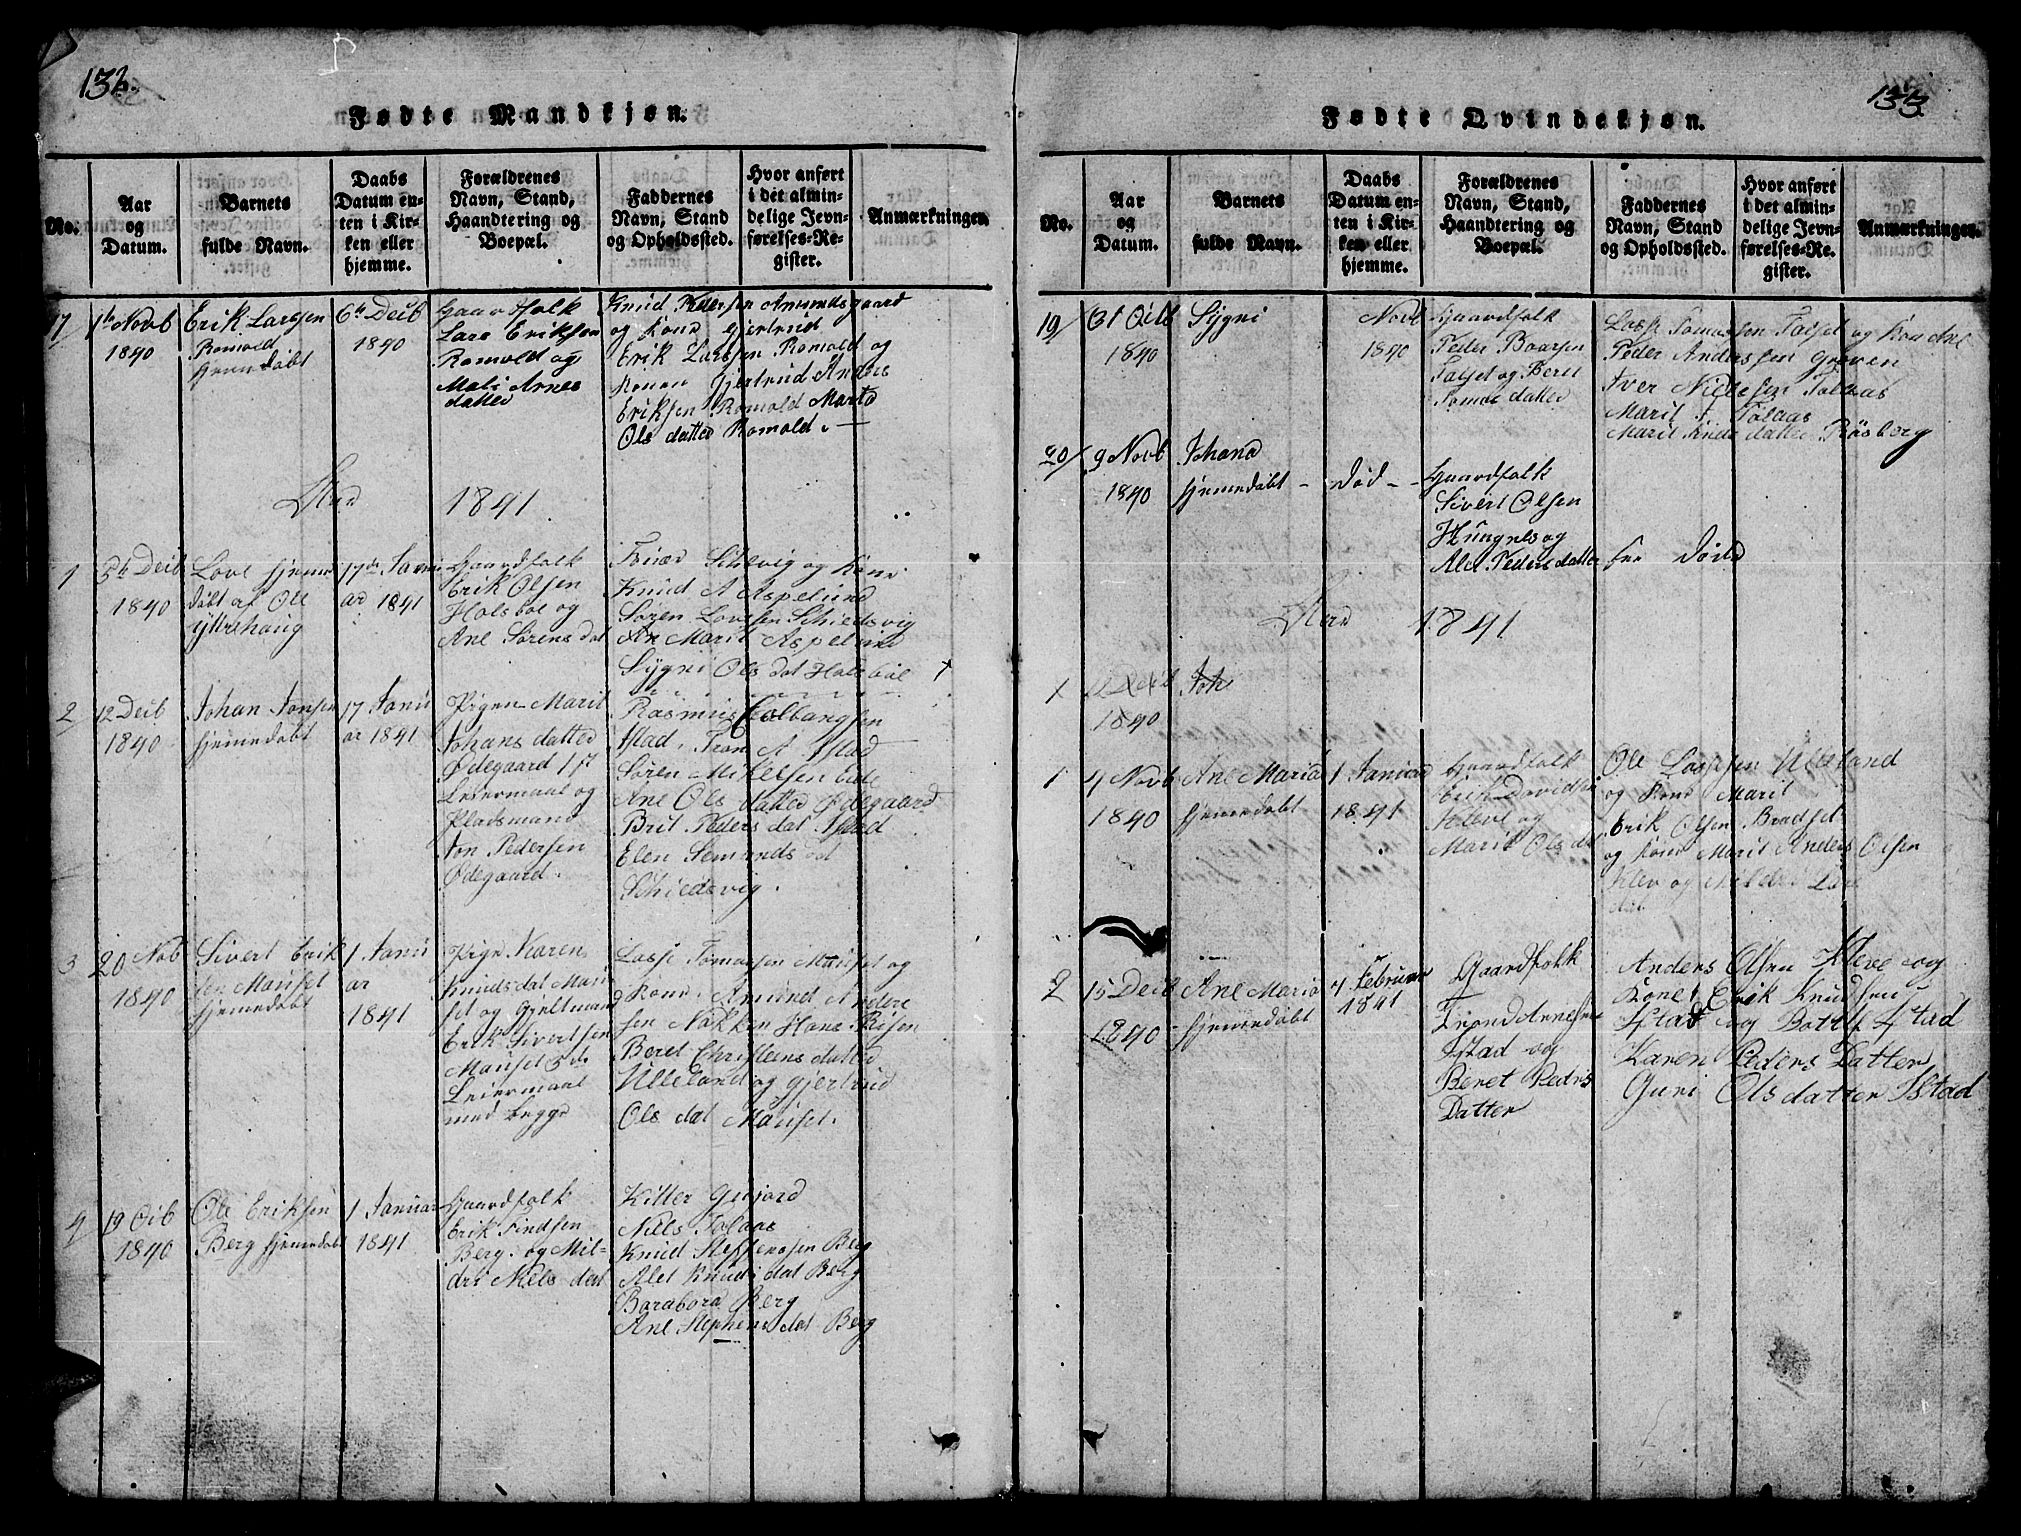 132.
Fødte Mandkjøn.
No.
Aar
og
Datum.
Barnets
fulde Navn.
Daabs
Datum en-
ten i Kir-
ken eller
hjemme.
Forældrenes
Navn, Stand,
Haandtering og
Boepæl.
Faddernes
Navn, Stand
og Opholdssted.
Hvor anført
i det almin-
delige Jevn-
førelses-Re-
gister.
Anmærkninger.
17
1te Novb
1840
Erik Larssen
Romold
hjemedøbt
6te Decb
1840
Gaardfolk
Lars Eriksen
Romold og
Mali Arnes
datter
Knud Pedersen Amundsgaard
og Kone Gjertrud
Erik Larssen Romold og
Konen Gjertrud Anders
Eriksen Romold Marta
Ols datter Romold.
Aar 1841
1
5te Decb
1840
Love hjeme
døbt af Ole
Yttrehaug
17de Janu
ar 1841
Gaardfolk
Erik Olsen
Holsboe og
Ane Sørens dat
Knud A Aspelund
Søren Lovesen Schiedsvig
An Marit Aspelund
Sygni Ols dat Holsbøe
2
12 Decb
1840
Johan Jonsen
hjemedøbt
17 Janu
ar 1841
Pigen Marit
Johans datter
Ødegaard 1ste
Leiermaal og
Pladsmand
Jon Pedersen
Ødegaard.
Rasmus Colbangsen
Istad. Tron A Istad
Søren Mikelsen
Ane Ols datter Ødegaard
Brit Peders dat Istad
Elen Semunds dat
Schiedsvig.
3
20 Nob
1840
Sivert Erik
sen Mauset
hjemedøbt
1 Janu
ar
1841
Pige Karen
Knuds dat Mau
set og Gjeltmand
Erik Sivertsen
Mauset 3de
Leiermaal
med begge
Lasse Tomassen Mauset og
Kone. Amund Anders
sen Nakken Hans Risen
Beret Christens datter
Ulleland og Gjertrud
Ols dat Mauset.
4
19 Ocb
1840
Ole Eriksen
Berg hjemedøbt
1 Januar
1841
Gaardfolk
Erik Findsen
Berg. og Mil-
dri Niels dat
Kitter Gujord
Niels Tolaas
Knud Steffensen Berg
Alet Knuds dat Berg
Barabora Berg
Ane Stephens dat Berg
133
Fødte Qvindekjøn.
No.
Aar
og
Datum.
Barnets
fulde Navn.
Daabs
Datum en-
ten i Kir-
ken eller
hjemme.
Forældrenes
Navn, Stand,
Haandtering og
Boepæl.
Faddernes
Navn, Stand
og Opholdssted.
Hvor anført
i det almin-
delige Jevn-
førelses-Re-
gister.
Anmærkninger.
19
31 Octb
1840
Sygni
Novb
1840
Gaardfolk
Peder Baarsen
Talset og Beret
Tomas datter
Lasse Tomassen Talset og Kon Ane
Peder Anderssen Graven
Iver Nielssen Tolaas
Marit I. Tolaas
Marit Knds datter Røsberg
20
9 Novb
1840
Johana
hjemedøbt - død -
Gaardfolk
Sivert Olsen
Hungnes og
Alet Peders datter
see døde
Aar 1841
1
Decb
1840
Joh
1
4 Novb
1840
Ane Maria
hjemedøbt
1 Januar
1841
Gaardfolk
Erik Davidsen
Kleve og
Marit Ols dat
Ole Lassesen Ulleland
og Kone Marit
Erik Olsen Bradset
og Kone Marit Anders Olsen
Klev og Mildri Lars
dat
2
15 Decb
1840
Ane Maria
hjemedøbt
4 Februar
1841
Gaardfolk
Trond Arnesen
Istad og
Beret Peders
Datter
Anders Olsen Kleve og
Kone. Erik Knudsen
Istad og Botlf Istad
Karen Peders Datter
Guri Olsdatter Istad